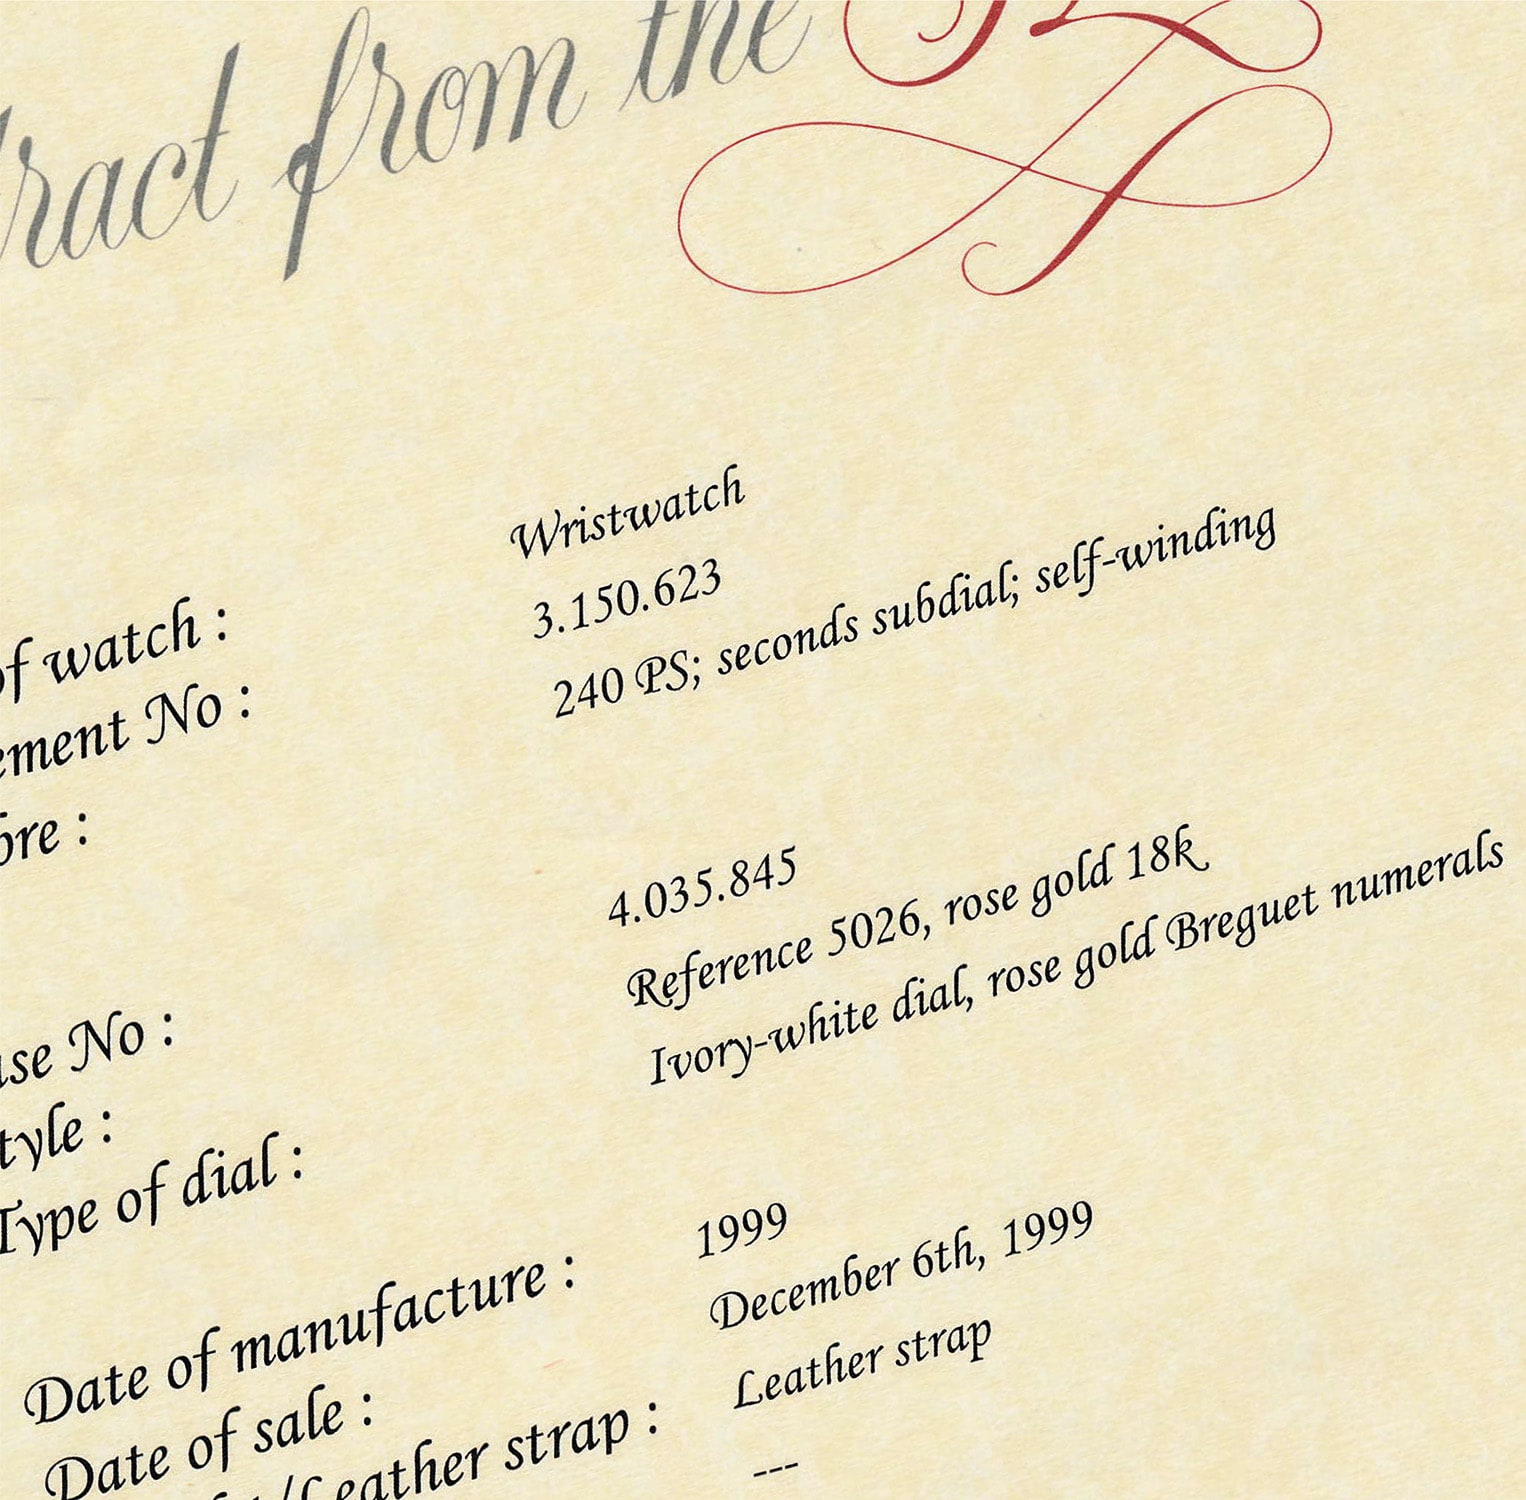 ract from the
of watch : Wristwatch
ement No : 3.150.623
bre : 240 PS; seconds subdial; self-winding
se No : 4.035.845
tyle : Reference 5026, rose gold 18k
Type of dial : Ivory-white dial, rose gold Breguet numerals
Date of manufacture : 1999
Date of sale : December 6th, 1999
/Leather strap : Leather strap
---